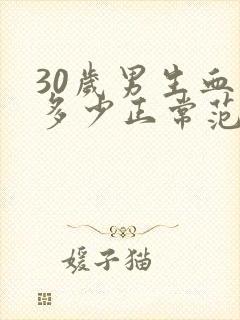 30歲男生血
多少正常范
媛子猫